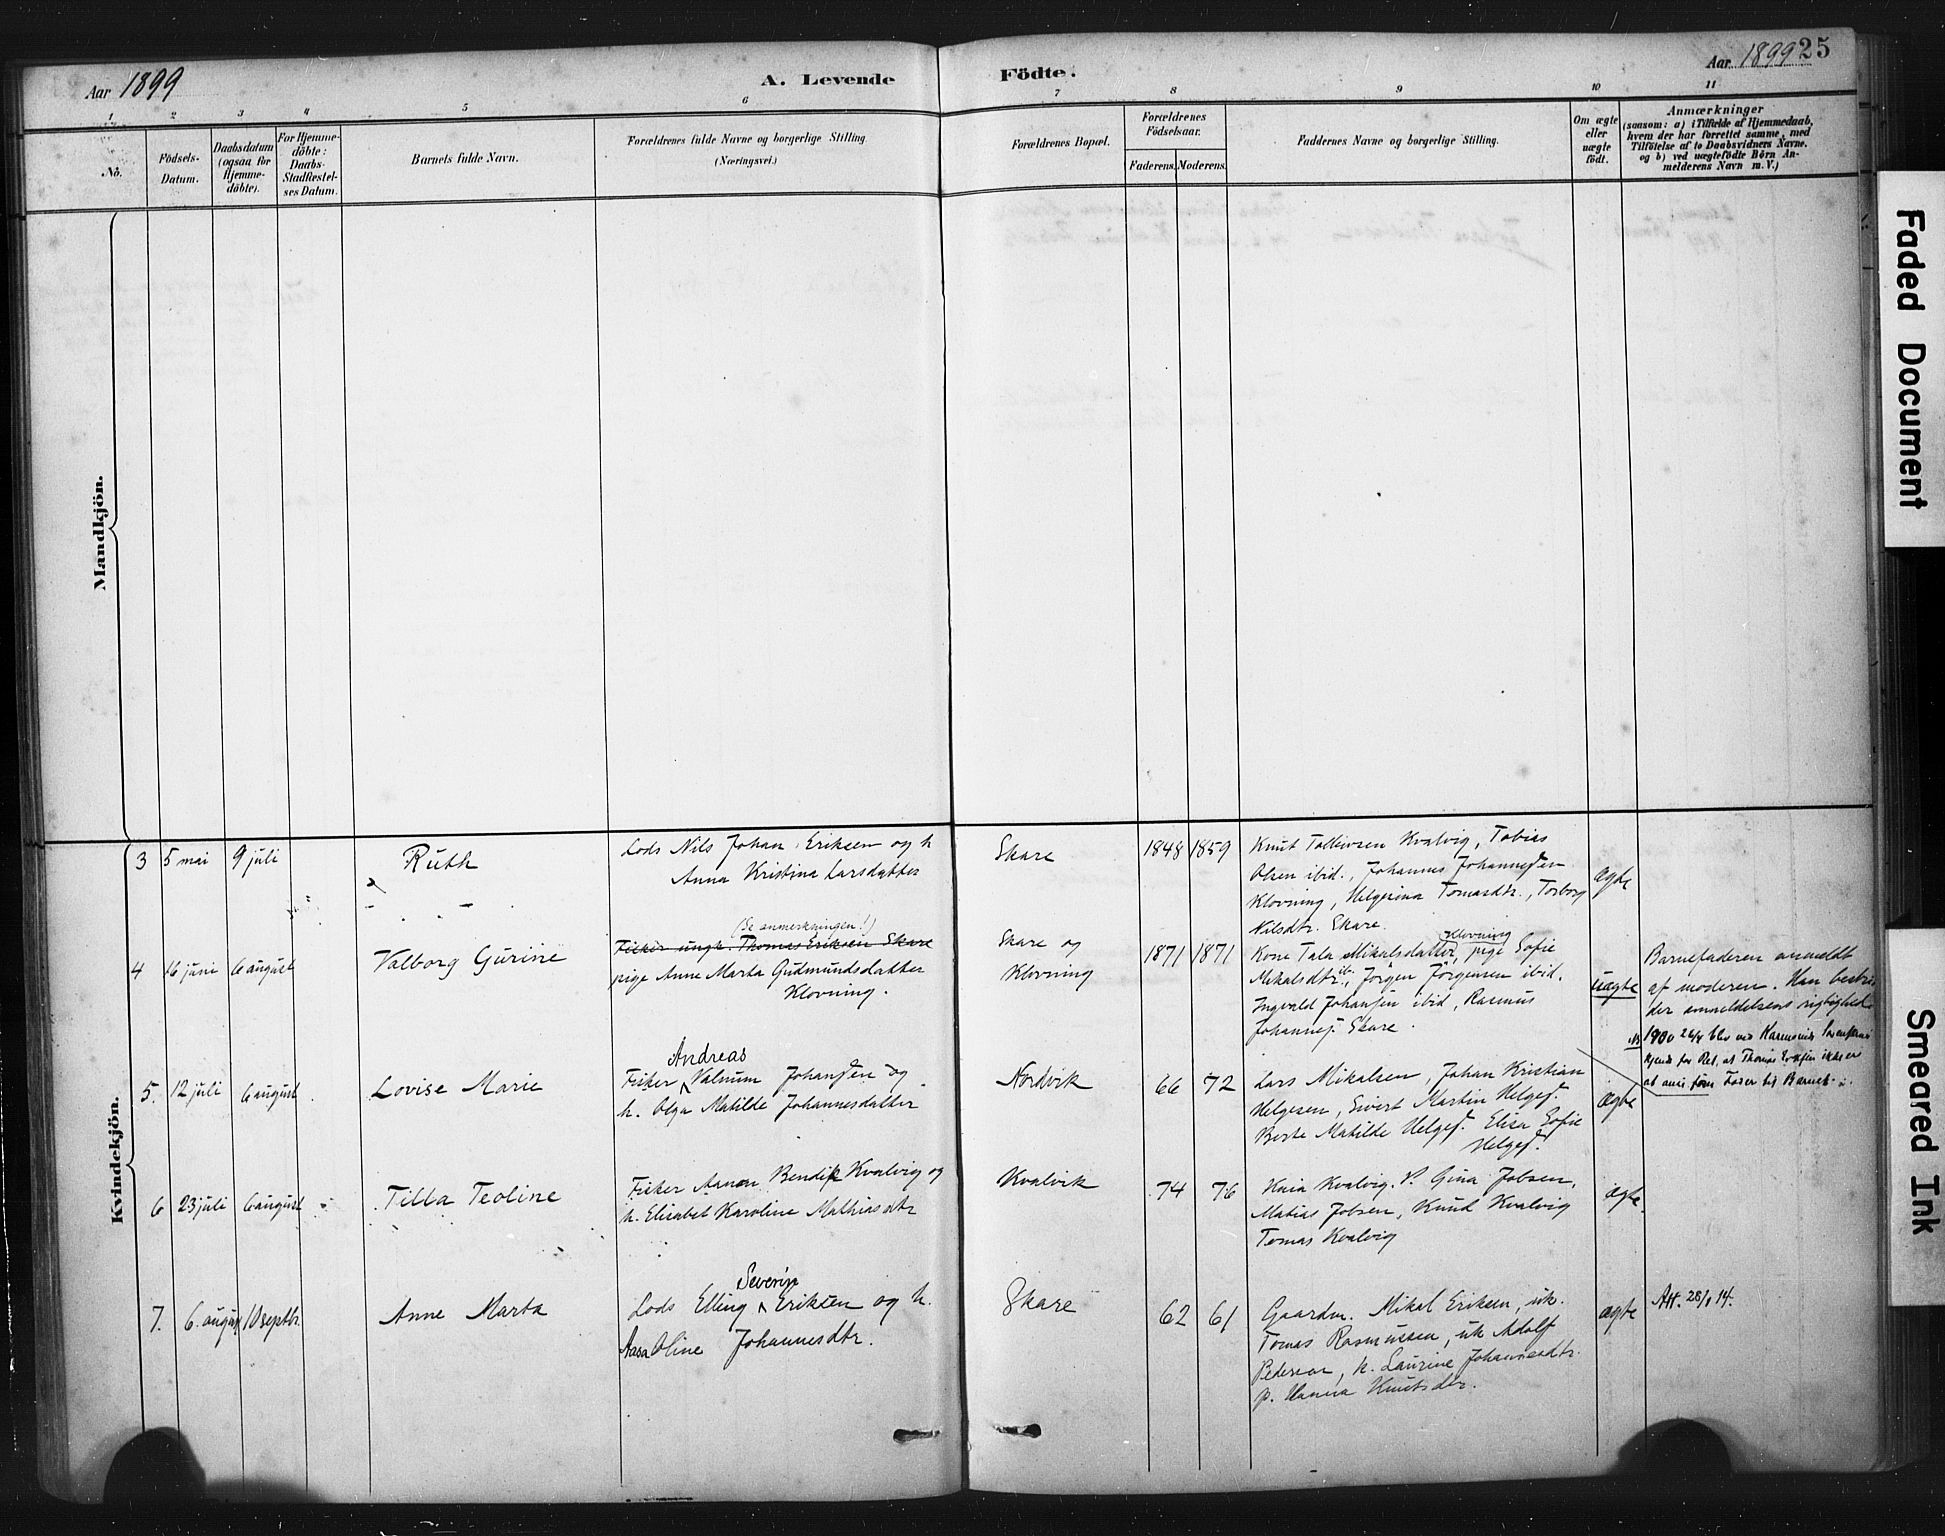 Aar 1899
A. Levende Födte.
Aar 1899 25
1 2 3 4 5 6 7 8 9 10 11
No.
Födsels-Datum.
Daabsdatum (ogsaa for Hjemme-döbte).
For Hjemme-döbte: Daabs-Stadfæstel-ses Datum.
Barnets fulde Navn.
Forældrenes fulde Navne og borgerlige Stilling.
(Næringsvei.)
Forældrenes Bopæl.
Forældrenes Födselsaar.
Faderens. Moderens.
Faddernes Navne og borgerlige Stilling.
Om ægte eller uægte födt.
Anmærkninger
(saasom: a) i Tilfælde af Hjemmedaab,
hvem der har forrettet samme, med
Tilföielse af to Daabsvidners Navne.
og b) ved uægtefödte Börn An-
melderens Navn m.V.)
Mandkjön.
Kvindekjön.
3 5 mai 9 juli Ruth
Lods Nils Johan Eriksen og h
Anna Kristina Larsdatter
Skare 1848 1859
Knut Tollevsen Kvalvig, Tobias
Olsen ibid., Johannes Johannesen
Klovning, Helgerina Tomasdtr., Torborg
Nilsdtr. Skare.
ægte
4 16 juni 6 august Valborg Gurine
(Se anmerkningen!)
Fisker ungk. Thomas Eriksen Skare
pige Anne Marta Gudmundsdatter
Klovning.
Skare og
Klovning
1871 1871
Klovning
Kone Tala Mikalsdatter, pige Sofie
Mikalsdtr. ib., Jörgen Jörgensen ibid.
Ingvald Johansen ibid, Rasmus
Johannes. Skare.
uægte
Barnefaderen anmeldt
af moderen. Han bestri-
der anmeldelsens rigtighed
NB 1900 26/4 blev ved Karmsunds Sorenskriveri
kjendt for Ret, at Thomas Eriksen ikke er
at anse som Fader til Barnet.
5. 12 juli 6 august Lovise Marie
Andreas
Fisker Valnum Johansen og
h. Olga Matilde Johannesdatter
Nordvik 66 72
Lars Mikalsen, Johan Kristian
Helgesen, Sivert Martin Helges.
Berte Matilde Helges. Elisa Sofie
Helges.
ægte
6 23 juli 6 august Tilla Teoline
Fisker Aanon Bendik Kvalvig og
h. Elisabet Karoline Mathiasdtr
Kvalvik 74 76
Kaia Kvalvig. P. Gina Jobsen,
Matias Jobsen, Knud Kvalvig
Tomas Kvalvig
ægte.
7. 6. august 10 septbr. Anne Marta
Severin
Lods Elling Eriksen og h.
Aasa Oline Johannesdtr.
Skare 62 61
Gaardm. Mikal Eriksen, uk.
Tomas Rasmussen, uk Adolf
Pedersen, h. Laurine Johannesdtr.
p. Hanna Knutsdtr.
ægte
Att. 28/1 14.
Faded Document
Smeared Ink